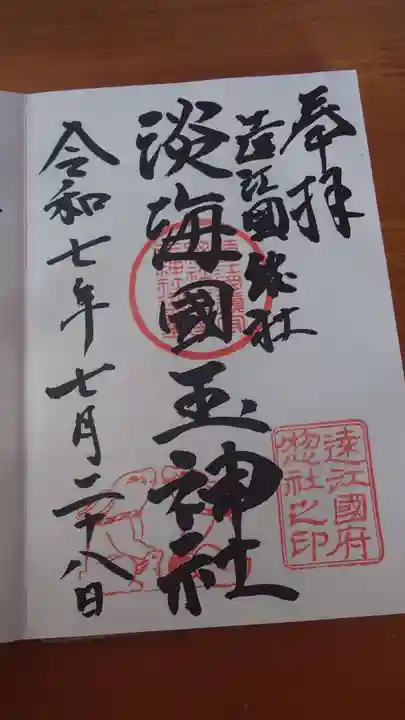 奉拝
遠江國総社
淡海國玉神社
令和七年七月二十八日
遠江國府
惣社之印